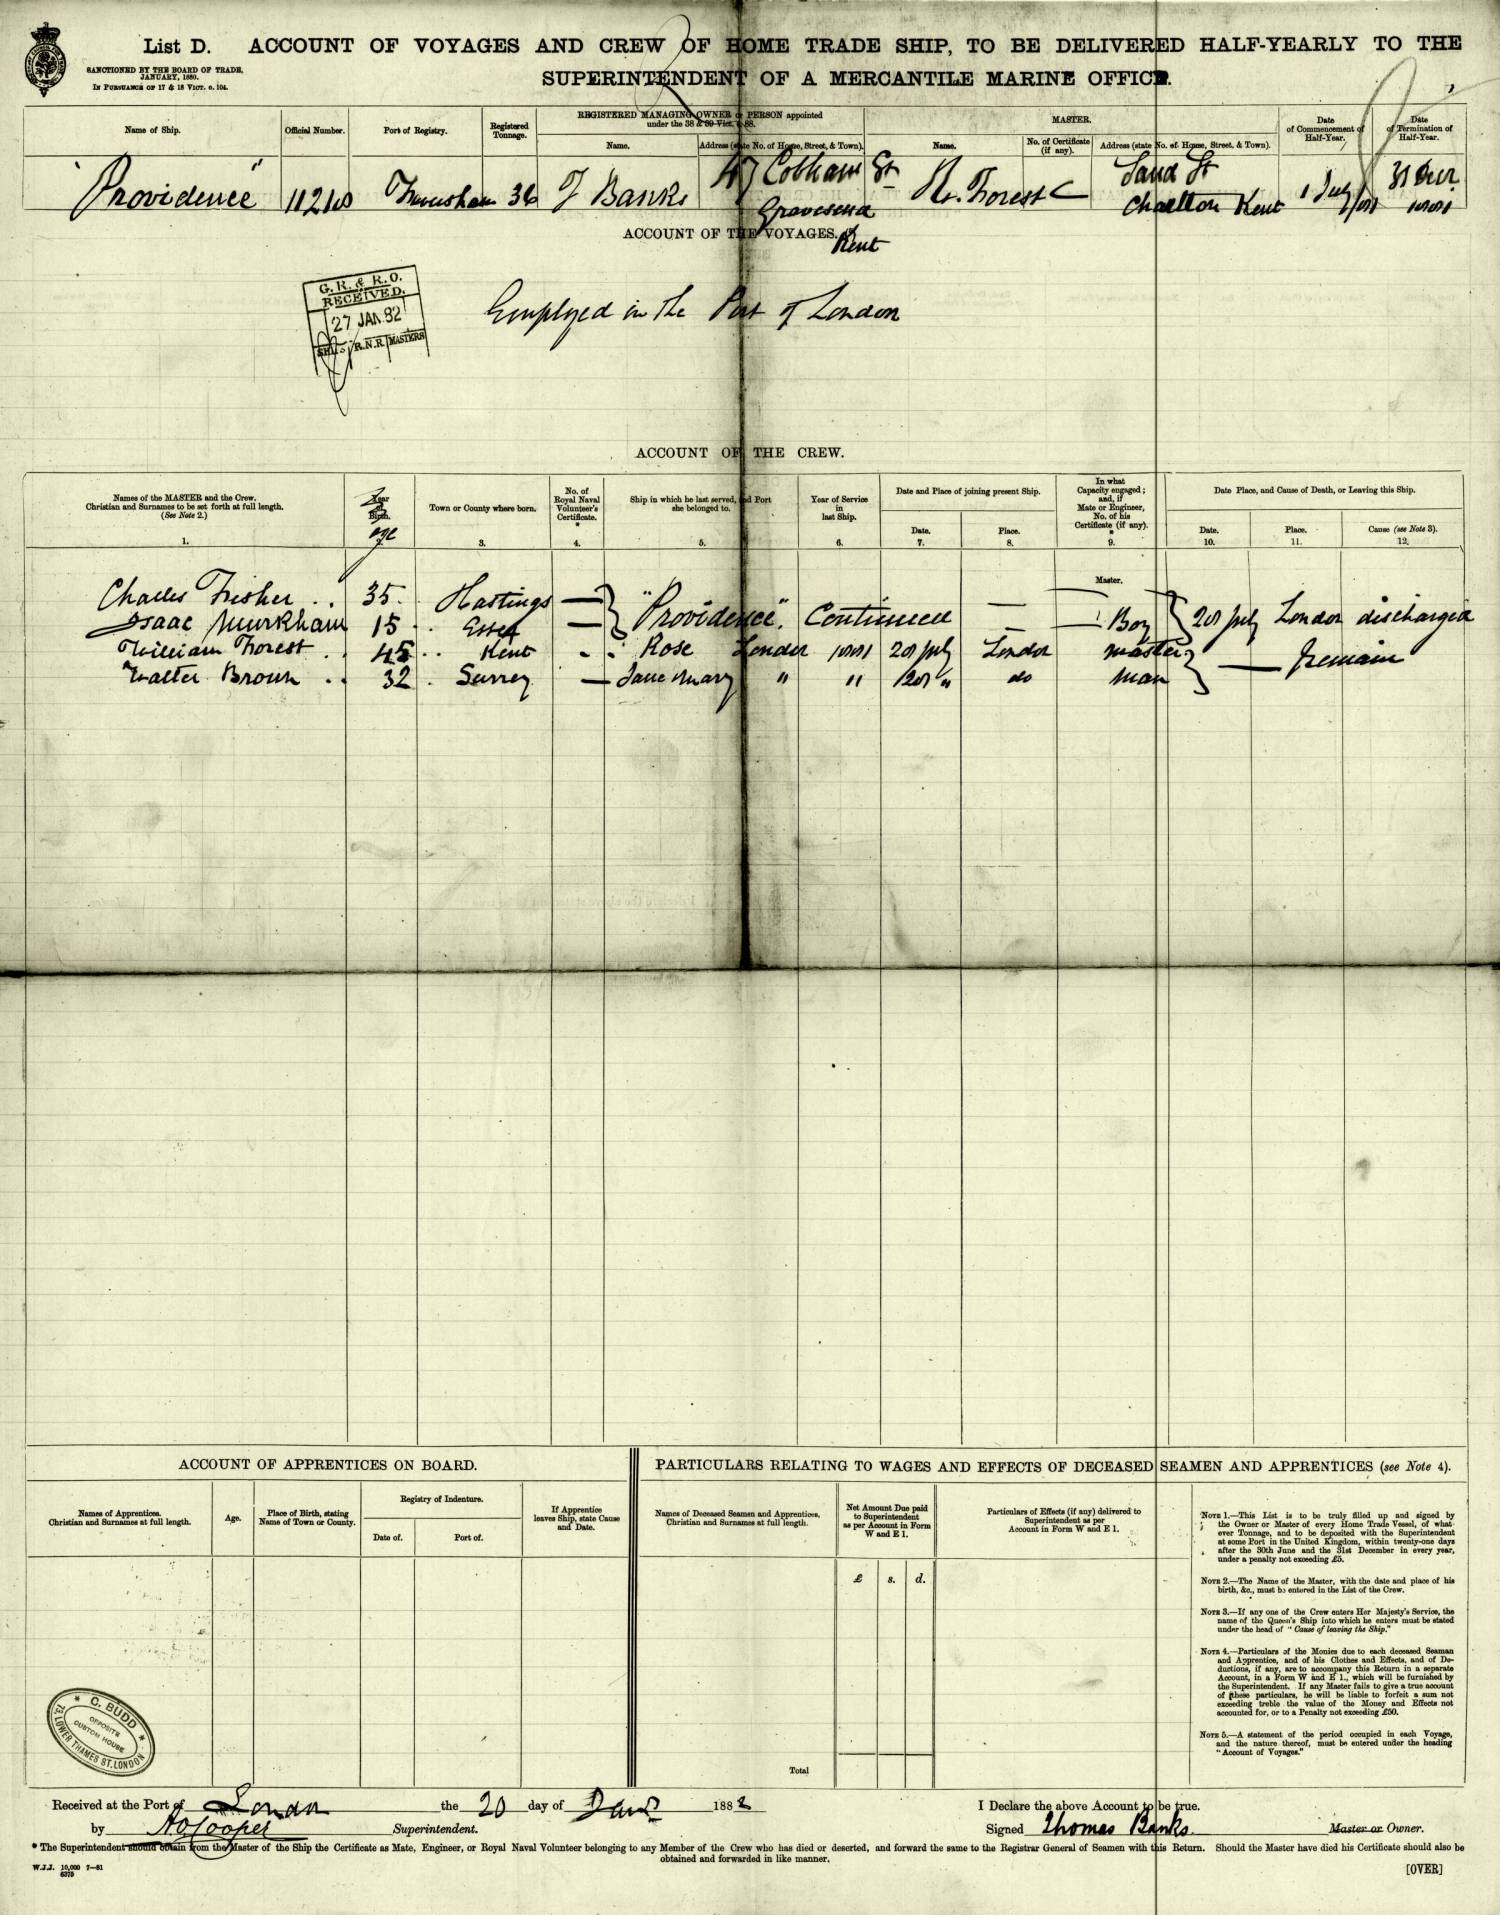 List D. ACCOUNT OF VOYAGES AND CREW OF HOME TRADE SHIP, TO BE DELIVERED HALF-YEARLY TO THE
SUPERINTENDENT OF A MERCANTILE MARINE OFFICE.
SANCTIONED BY THE BOARD OF TRADE,
JANUARY, 1880.
IN PURSUANCE OF 17 & 18 VICT. c. 104.
Name of Ship.
Official Number.
Port of Registry.
Registered Tonnage.
REGISTERED MANAGING OWNER or PERSON appointed
under the 38 & 39 Vict. c. 88.
Name.
Address (state No. of House, Street, & Town).
MASTER.
Name.
No. of Certificate (if any).
Address (state No. of House, Street, & Town).
Date of Commencement of Half-Year.
Date of Termination of Half-Year.
"Providence" 36 T Banks 47 Cobham St Gravesend Kent Wm. Forest Sand St Charlton Kent 1 July 31 Decr
ACCOUNT OF THE VOYAGES.
G. R. & R. O.
RECEIVED.
27 JAN. 82
R.N.R. MASTERS
Employed in the Port of London
ACCOUNT OF THE CREW.
Names of the MASTER and the Crew.
Christian and Surnames to be set forth at full length.
(See Note 2.)
1.
Year of Birth.
age
Town or County where born.
3.
No. of Royal Naval Volunteer's Certificate.
*
4.
Ship in which he last served, and Port she belonged to.
5.
Year of Service in last Ship.
6.
Date and Place of joining present Ship.
Date.
7.
Place.
8.
In what Capacity engaged; and, if Mate or Engineer, No. of his Certificate (if any).
*
9.
Date Place, and Cause of Death, or Leaving this Ship.
Date.
10.
Place.
11.
Cause (see Note 3).
12.
Master.
Charles Fisher .. 35. Hastings — "Providence". Continued —
Isaac Murkham 15 .. Essex — — Boy 20 July London discharged
William Forest .. 45 .. Kent Rose London 20 July London master
Walter Brown .. 32 . Surrey — Jane Mary " " " do man — Remain
ACCOUNT OF APPRENTICES ON BOARD.
Names of Apprentices.
Christian and Surnames at full length.
Age.
Place of Birth, stating Name of Town or County.
Registry of Indenture.
Date of.
Port of.
If Apprentice leaves Ship, state Cause and Date.
PARTICULARS RELATING TO WAGES AND EFFECTS OF DECEASED SEAMEN AND APPRENTICES (see Note 4).
Names of Deceased Seamen and Apprentices,
Christian and Surnames at full length.
Net Amount Due paid to Superintendent as per Account in Form W and E 1.
£ s. d.
Particulars of Effects (if any) delivered to Superintendent as per Account in Form W and E 1.
Total
NOTE 1.—This List is to be truly filled up and signed by
the Owner or Master of every Home Trade Vessel, of what-
ever Tonnage, and to be deposited with the Superintendent
at some Port in the United Kingdom, within twenty-one days
after the 30th June and the 31st December in every year,
under a penalty not exceeding £5.
NOTE 2.—The Name of the Master, with the date and place of his
birth, &c., must be entered in the List of the Crew.
NOTE 3.—If any one of the Crew enters Her Majesty's Service, the
name of the Queen's Ship into which he enters must be stated
under the head of "Cause of leaving the Ship."
NOTE 4.—Particulars of the Monies due to each deceased Seaman
and Apprentice, and of his Clothes and Effects, and of De-
ductions, if any, are to accompany this Return in a separate
Account, in a Form W and E 1., which will be furnished by
the Superintendent. If any Master fails to give a true account
of these particulars, he will be liable to forfeit a sum not
exceeding treble the value of the Money and Effects not
accounted for, or to a Penalty not exceeding £50.
NOTE 5.—A statement of the period occupied in each Voyage,
and the nature thereof, must be entered under the heading
"Account of Voyages."
* C. BUDD *
OPPOSITE
CUSTOM HOUSE
73, LOWER THAMES ST. LONDON
Received at the Port of London the 20 day of Jany 1882
by Cooper Superintendent.
I Declare the above Account to be true.
Signed Thomas Banks. Master or Owner.
* The Superintendent should obtain from the Master of the Ship the Certificate as Mate, Engineer, or Royal Naval Volunteer belonging to any Member of the Crew who has died or deserted, and forward the same to the Registrar General of Seamen with this Return. Should the Master have died his Certificate should also be
obtained and forwarded in like manner.
W.J.J. 10,000 7—81
6375
[OVER]